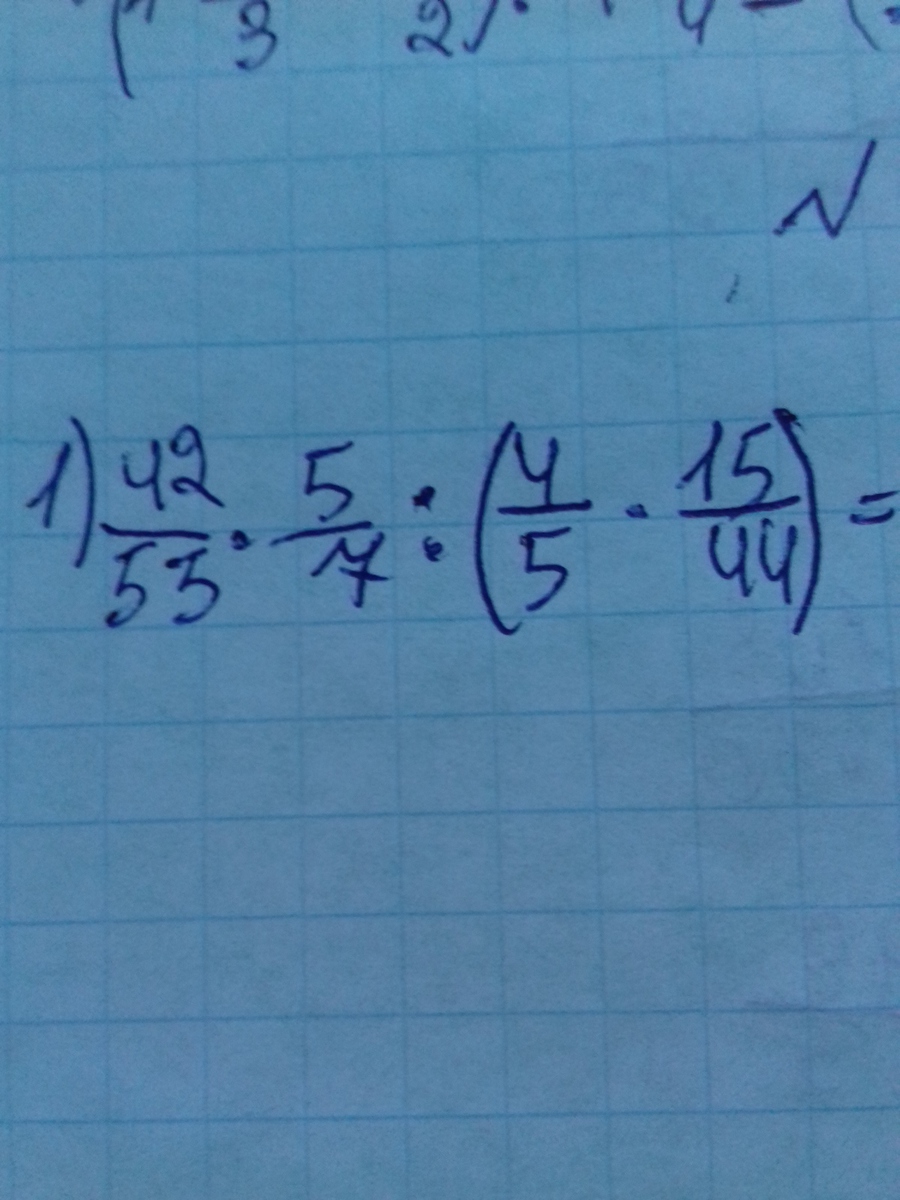 3 2). 4 - (
N
1) 42/55 · 5/7 : (4/5 · 15/44) =